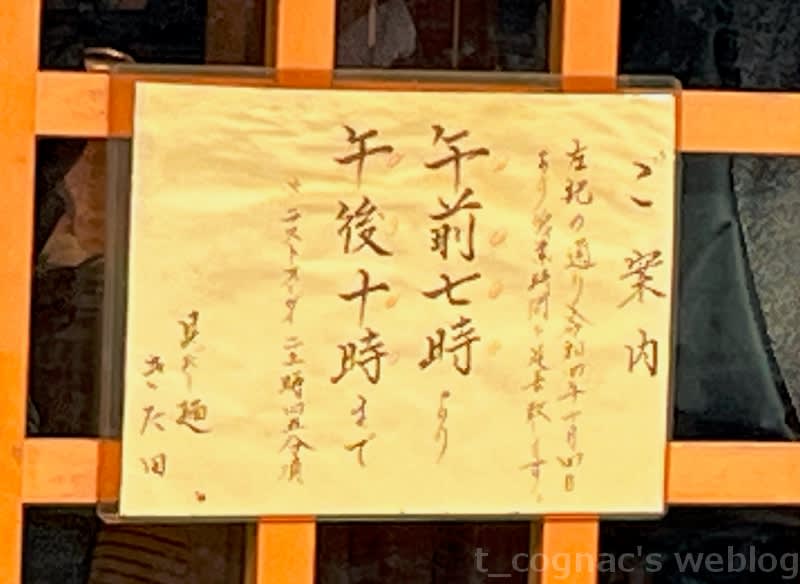 ご案内
左記の通り令和四年一月四日
より営業時間を変更致します。
午前七時より
午後十時まで
ラストオーダー 二十一時四五分頃
きた田
t_cognac's weblog